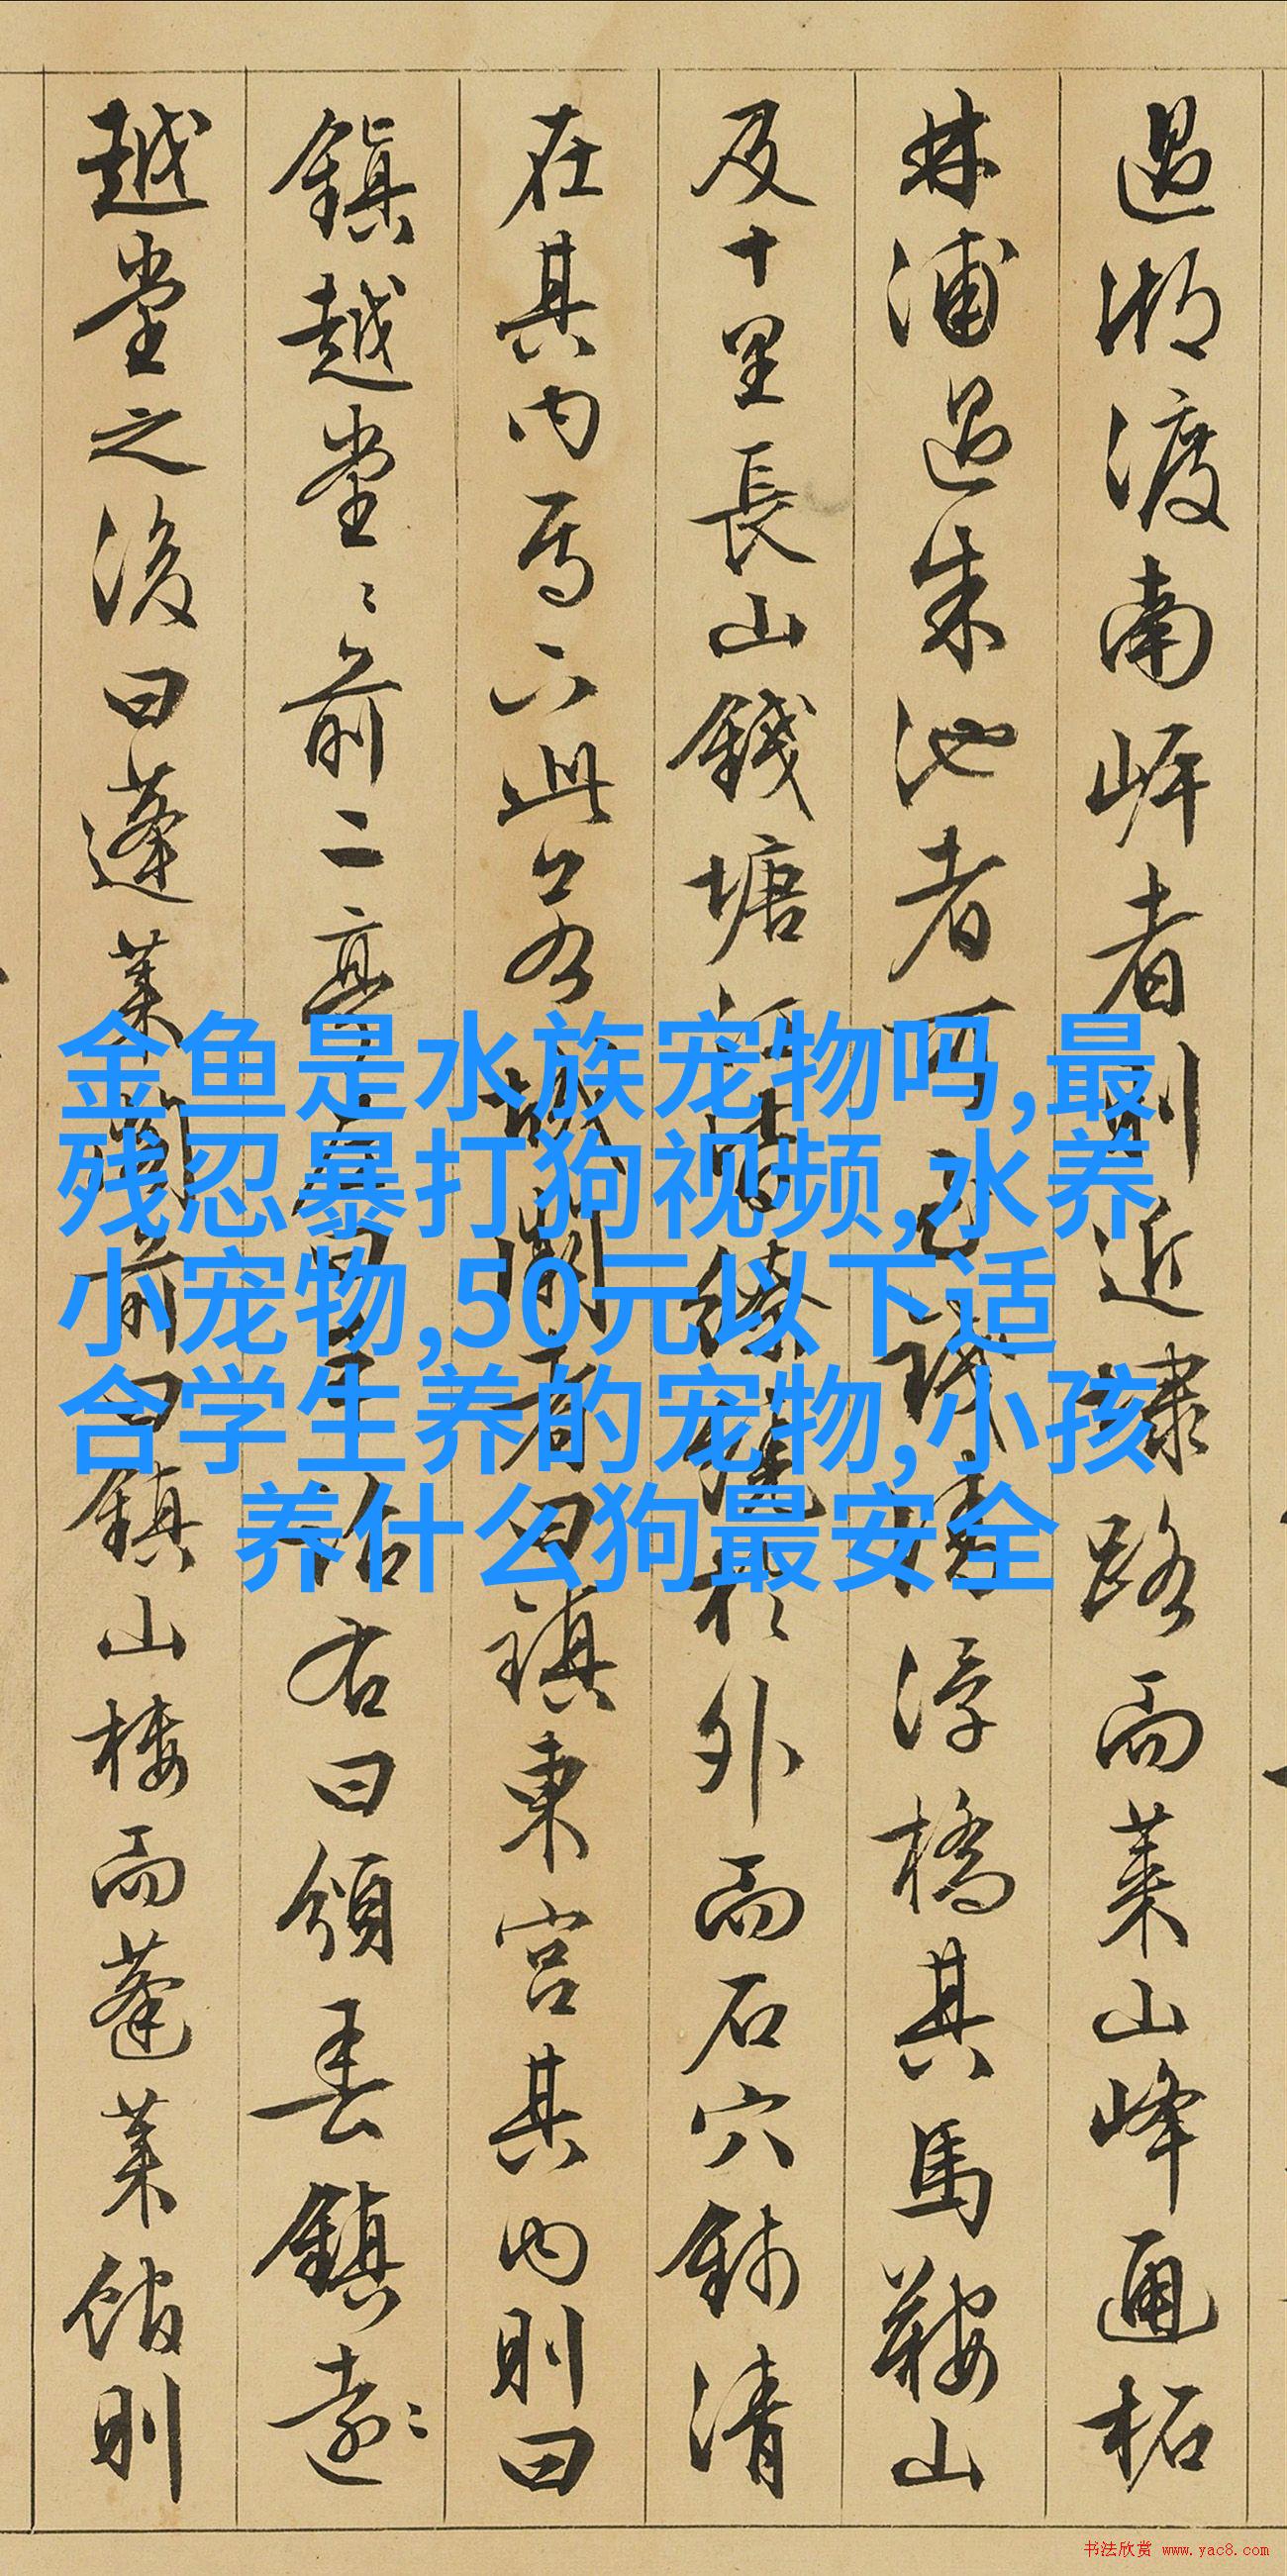 過湖渡南岸者則近肅路而萊山峰通柘
林浦過朱池者
浮橋其馬鞍山
及十里長山錢塘
於外而石穴錡清
在其內焉六此
者曰鎮東宮其內則曰
鎮越堂〻前二亭
右曰領春鎮遠〻
越堂之後曰蓬萊閣前曰鎮山樓而蓬萊館則
金鱼是水族宠物吗,最
残忍暴打狗视频,水养
小宠物,50元以下适
合学生养的宠物,小孩
养什么狗最安全
书法欣赏 www.yac8.com